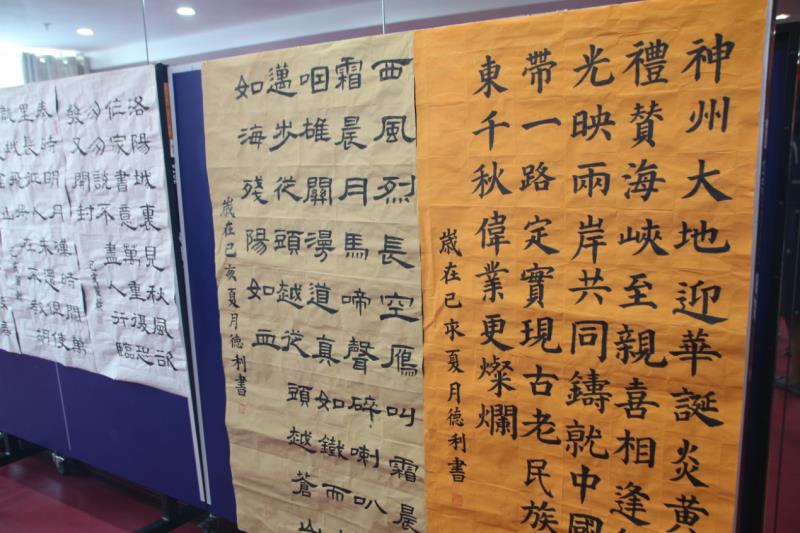 神州大地迎華誕炎黃
禮贊海峽至親喜相逢
光映兩岸共同鑄就中國
帶一路定實現古老民族
東千秋偉業更燦爛
歲在己亥夏月德利書
西風烈長空鴈叫霜晨
霜晨月馬啼聲碎喇叭
咽雄關漫道真如鐵而
邁步從頭越從頭越蒼山
如海殘陽如血
歲在己亥夏月德利書
洛陽城裏見秋風欲
作家書意萬重復恐
匆匆說不盡行人臨
發又開封
秦時明月漢時關萬
里長征人未還但使